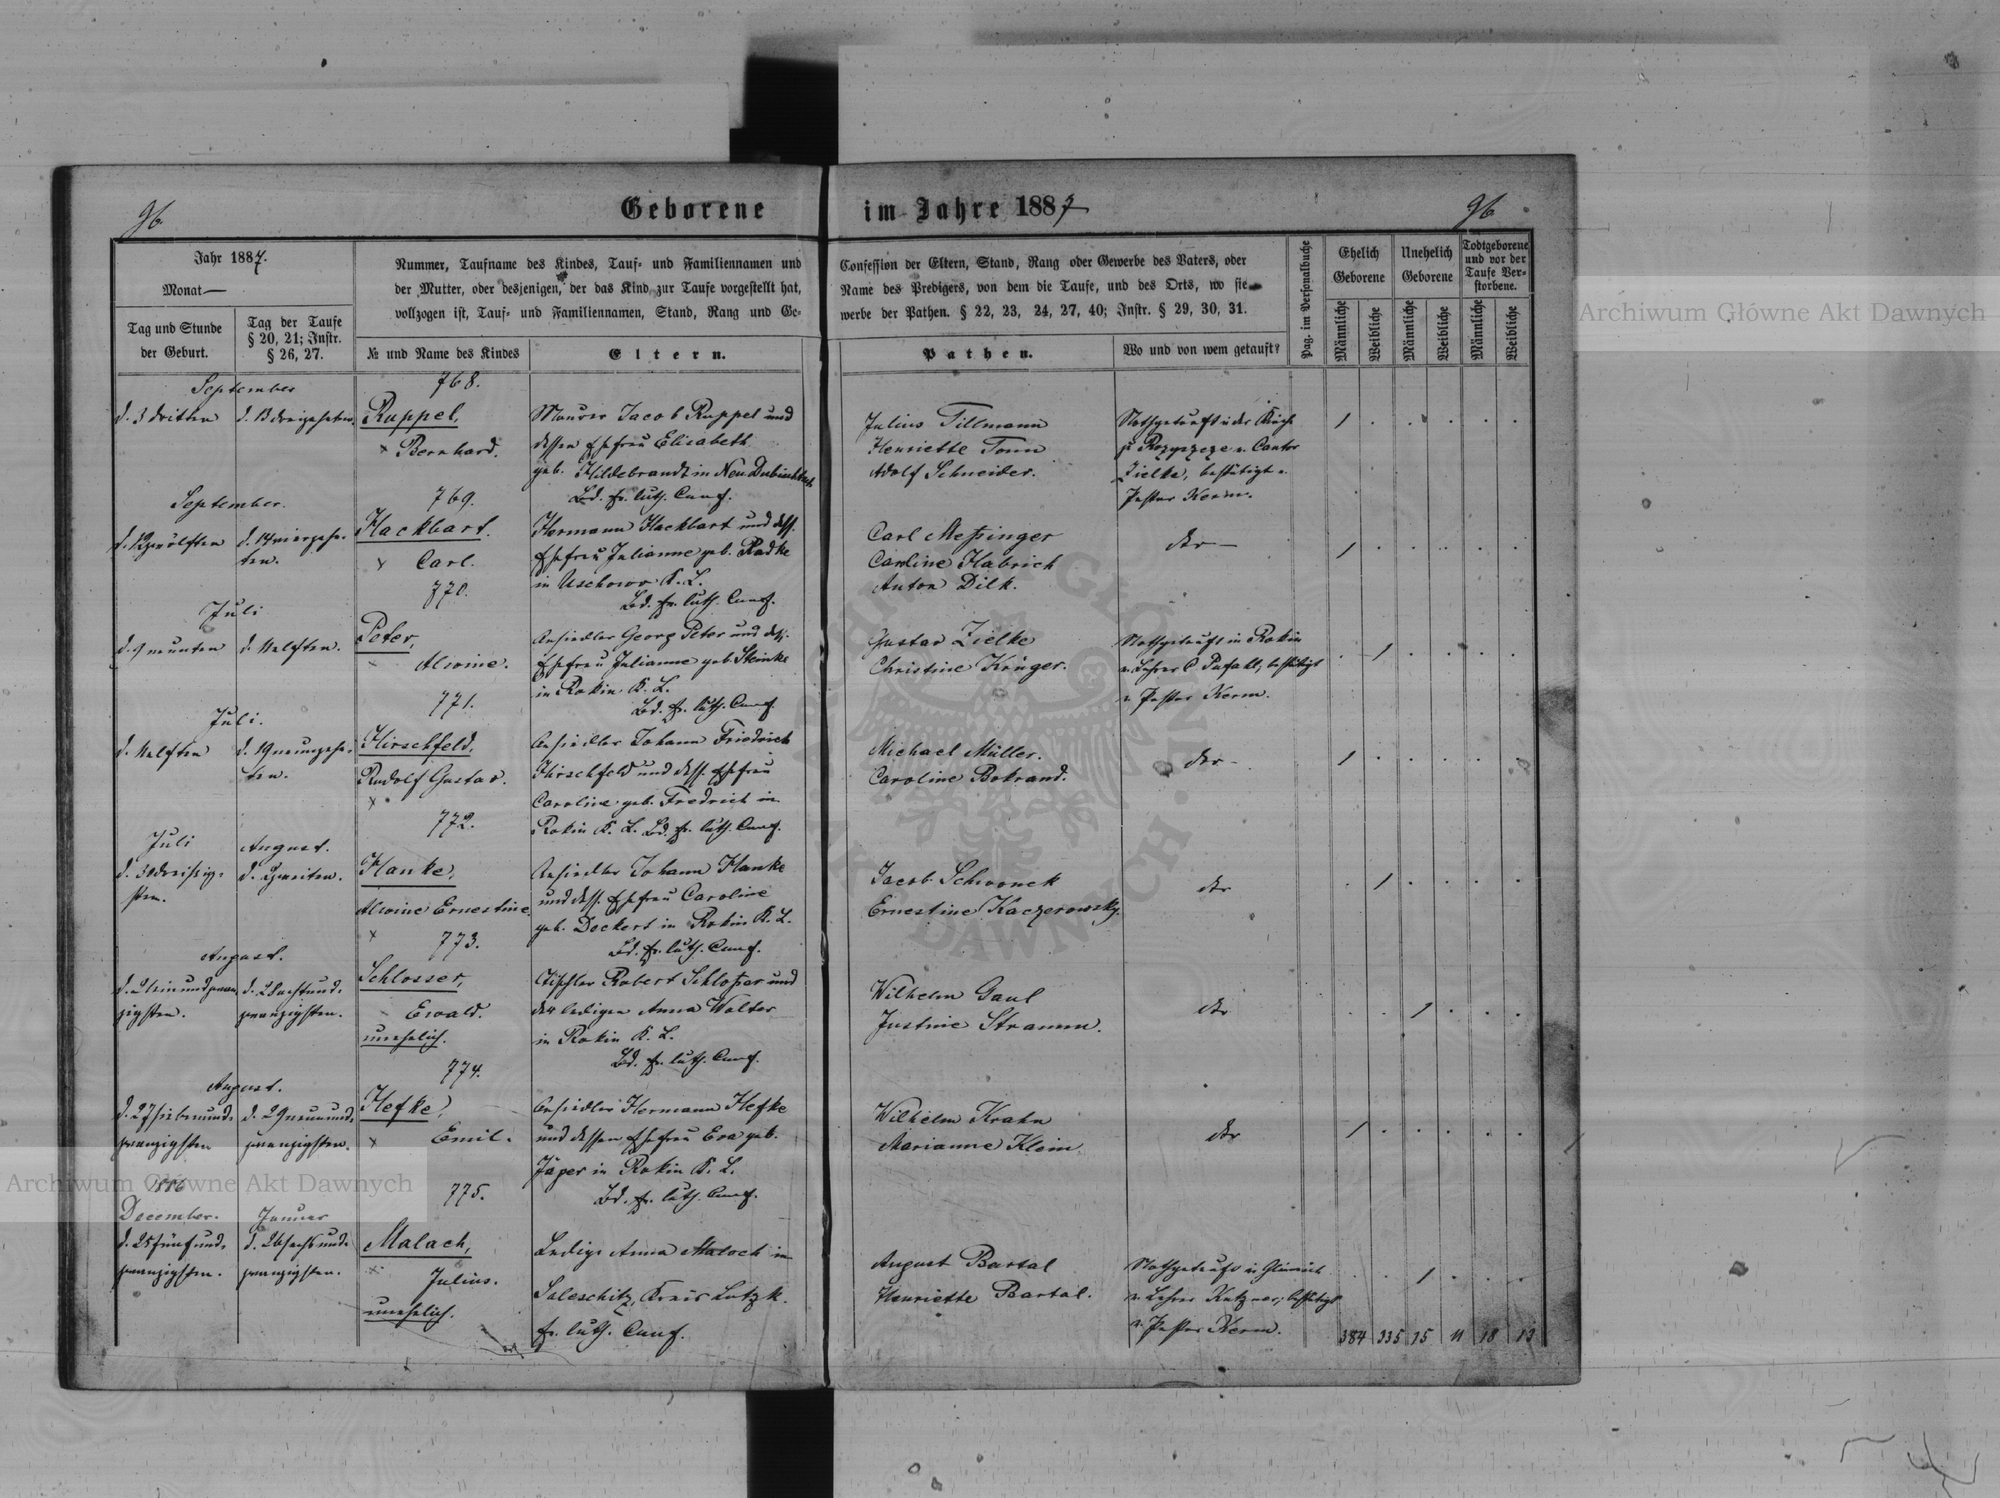 96
Geborene
im Jahre 1887
96
Jahr 1887.
Monat
Tag und Stunde
der Geburt.
Tag der Taufe
§ 20, 21; Instr.
§ 26, 27.
Nummer, Taufname des Kindes, Tauf- und Familiennamen und
der Mutter, oder desjenigen, der das Kind zur Taufe vorgestellt hat,
vollzogen ist, Tauf- und Familiennamen, Stand, Rang und Ge-
№ und Name des Kindes
Eltern.
Confession der Eltern, Stand, Rang oder Gewerbe des Vaters, oder
Name des Predigers, von dem die Taufe, und des Orts, wo sie
werbe der Pathen. § 22, 23, 24, 27, 40; Instr. § 29, 30, 31.
Pathen.
Wo und von wem getauft?
Pag. im Personalbuche
Ehelich
Geborene
Unehelich
Geborene
Todtgeborene
und vor der
Taufe Ver-
storbene.
Männliche
Weibliche
Männliche
Weibliche
Männliche
Weibliche
September
d. 3 dritten
d. 13 dreizehnten.
768.
Ruppel,
Bernhard.
Maurer Jacob Ruppel und
dessen Ehefrau Elisabeth
geb. Hildebrandt in Neu
Bd. ev. luth. Conf.
Julius Tillmann
Henriette Tonn
Adolf Schneider.
Nothgetauft in der Kirche
zu Rozyszcze v. Cantor
Zielke, bestätigt v.
Pastor Kerm.
1
September.
d. 12 zwölften
d. 14 vierzehn-
ten.
769.
Hackbart.
Carl.
Hermann Hackbart und dess.
Ehefrau Julianne geb. Radke
in Uschowo K. L.
Bd. ev. luth. Conf.
Carl Meßinger
Caroline Habrich
Anton Dilk.
dto
1
Juli
d. 9 neunten
d. 11 elften.
770.
Peter,
Alwine.
Ansiedler Georg Peter und dess.
Ehefrau Julianne geb. Steinke
in Rokin K. L.
Bd. ev. luth. Conf.
Gustav Zielke
Christine Krüger.
Nothgetauft in Rokin
v. Lehrer C. Pufahl, bestätigt
v. Pastor Kerm.
1
Juli.
d. 11 elften
d. 19 neunzehn-
ten.
771.
Hirschfeld,
Rudolf Gustav.
Ansiedler Johann Friedrich
Hirschfeld und dess. Ehefrau
Caroline geb. Fredrich in
Rokin K. L. Bd. ev. luth. Conf.
Michael Müller.
Caroline Bokrand.
dto
1
Juli
August.
d. 30 dreißig-
sten.
d. 2 zweiten.
772.
Hanke,
Alwine Ernestine
Ansiedler Johann Hanke
und dess. Ehefrau Caroline
geb. Deckert in Rokin K. L.
Bd. ev. luth. Conf.
Jacob Schwonek
Ernestine Kaczerowsky.
dto
1
August.
d. 21 einundzwan-
zigsten.
d. 28 achtund-
zwanzigsten.
773.
Schlosser,
Ewald.
unehelich.
Tischler Robert Schloßer und
der ledigen Anna Wolter
in Rokin K. L.
Bd. ev. luth. Conf.
Wilhelm Gaul
Justine Stramm.
dto
1
August.
d. 27 siebenund-
zwanzigsten
d. 29 neunund-
zwanzigsten.
774.
Hefke,
Emil.
Ansiedler Hermann Hefke
und dessen Ehefrau Eva geb.
Jäger in Rokin K. L.
Bd. ev. luth. Conf.
Wilhelm Krahn
Marianne Klein.
dto
1
1886
December.
Januar
d. 25 fünfund-
zwanzigsten.
d. 26 sechsund-
zwanzigsten.
775.
Malach,
Julius.
unehelich.
Ledige Anna Malach in
Saleschitz, Kreis Lutzk.
ev. luth. Conf.
August Bartal
Henriette Bartal.
Nothgetauft in
v. Lehrer Kutzner, bestätigt
v. Pastor Kerm.
1
384 335 15 11 18 13
Archiwum Główne Akt Dawnych
Archiwum Główne Akt Dawnych